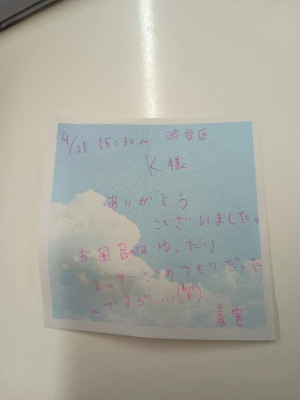 9/21 15:30〜 渋谷区
K様
ありがとう
ございました。
お風呂はゆったり
つもりだった
んですが…(笑)